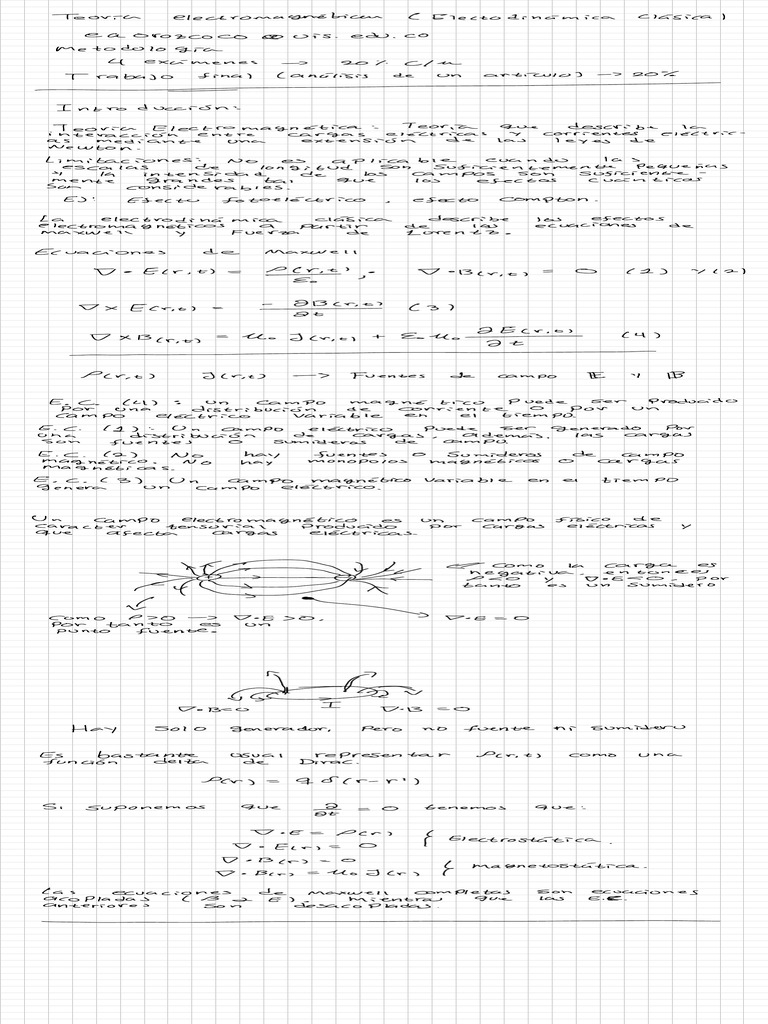 Teoría electromagnética (Electodinámica Clásica)
eaorozcoco@uis.edu.co
Metodología
4 exámenes → 20% c/u
Trabajo final (análisis de un artículo) → 20%
Introducción:
Teoría Electromagnética: Teoría que describe la
interacción entre cargas eléctricas y corrientes eléctric-
as mediante una extensión de las leyes de
Newton.
Limitaciones: No es aplicable cuando las
escalas de longitud son suficientemente pequeñas
y la intensidad de los campos son suficiente-
mente grandes tal que los efectos cuánticos
son considerables.
Ej: Efecto fotoeléctrico, efecto Compton.
La electrodinámica clásica describe los efectos
electromagnéticos a partir de las ecuaciones de
Maxwell y Fuerza de Lorentz.
Ecuaciones de Maxwell
∇·E(r,t) = ρ(r,t)/ε₀ ;· ∇·B(r,t) = 0 (1) y (2)
∇×E(r,t) = -∂B(r,t)/∂t (3)
∇×B(r,t) = μ₀ J(r,t) + ε₀μ₀ ∂E(r,t)/∂t (4)
ρ(r,t) J(r,t) → Fuentes de campo E y B
E.C. (4): un campo magnético puede ser producido
por una distribución de corriente o por un
campo eléctrico variable en el tiempo.
E.C. (1): Un campo eléctrico puede ser generado por
una distribución de cargas. Además, las cargas
son fuentes o sumideros de campo.
E.C. (2) No hay fuentes o sumideros de campo
magnético. No hay monopolos magnéticos o cargas
magnéticas.
E.C. (3) Un campo magnético variable en el tiempo
genera un campo eléctrico.
Un campo electromagnético es un campo físico de
caracter tensorial producido por cargas eléctricas y
que afecta cargas eléctricas.
Como la carga es
negativa, entonces
ρ<0 y ∇·E<0. Por
tanto es un sumidero
Como ρ>0 → ∇·E>0.
Por tanto es un
punto fuente.
∇·E=0
∇·B=0 I ∇·B=0
Hay solo generador, pero no fuente ni sumidero
Es bastante usual representar ρ(r,t) como una
función delta de Dirac.
ρ(r) = q δ(r-r')
Si suponemos que ∂/∂t = 0 tenemos que:
∇·E = ρ(r) { Electrostática.
∇·E(r) = 0
∇·B(r) = 0 { Magnetostática.
∇·B(r) = μ₀ J(r)
Las ecuaciones de Maxwell completas son ecuaciones
acopladas (B y E). Mientras que las E.C
anteriores son desacopladas.